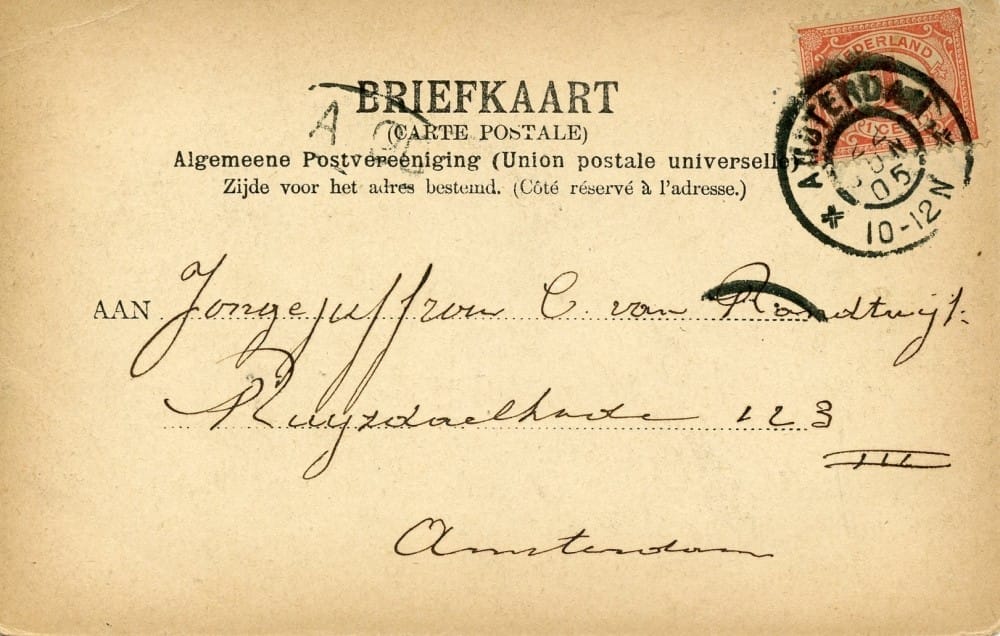 BRIEFKAART
(CARTE POSTALE)
Algemeene Postvereeniging (Union postale universelle)
Zijde voor het adres bestemd. (Côté réservé à l'adresse.)
NEDERLAND
1 CENT
AMSTERDAM
JUN
05
10-12N
A
AAN Jongejuffrou C. van Randtwijk.
Ruyzdaelkade 123
III
Amsterdam